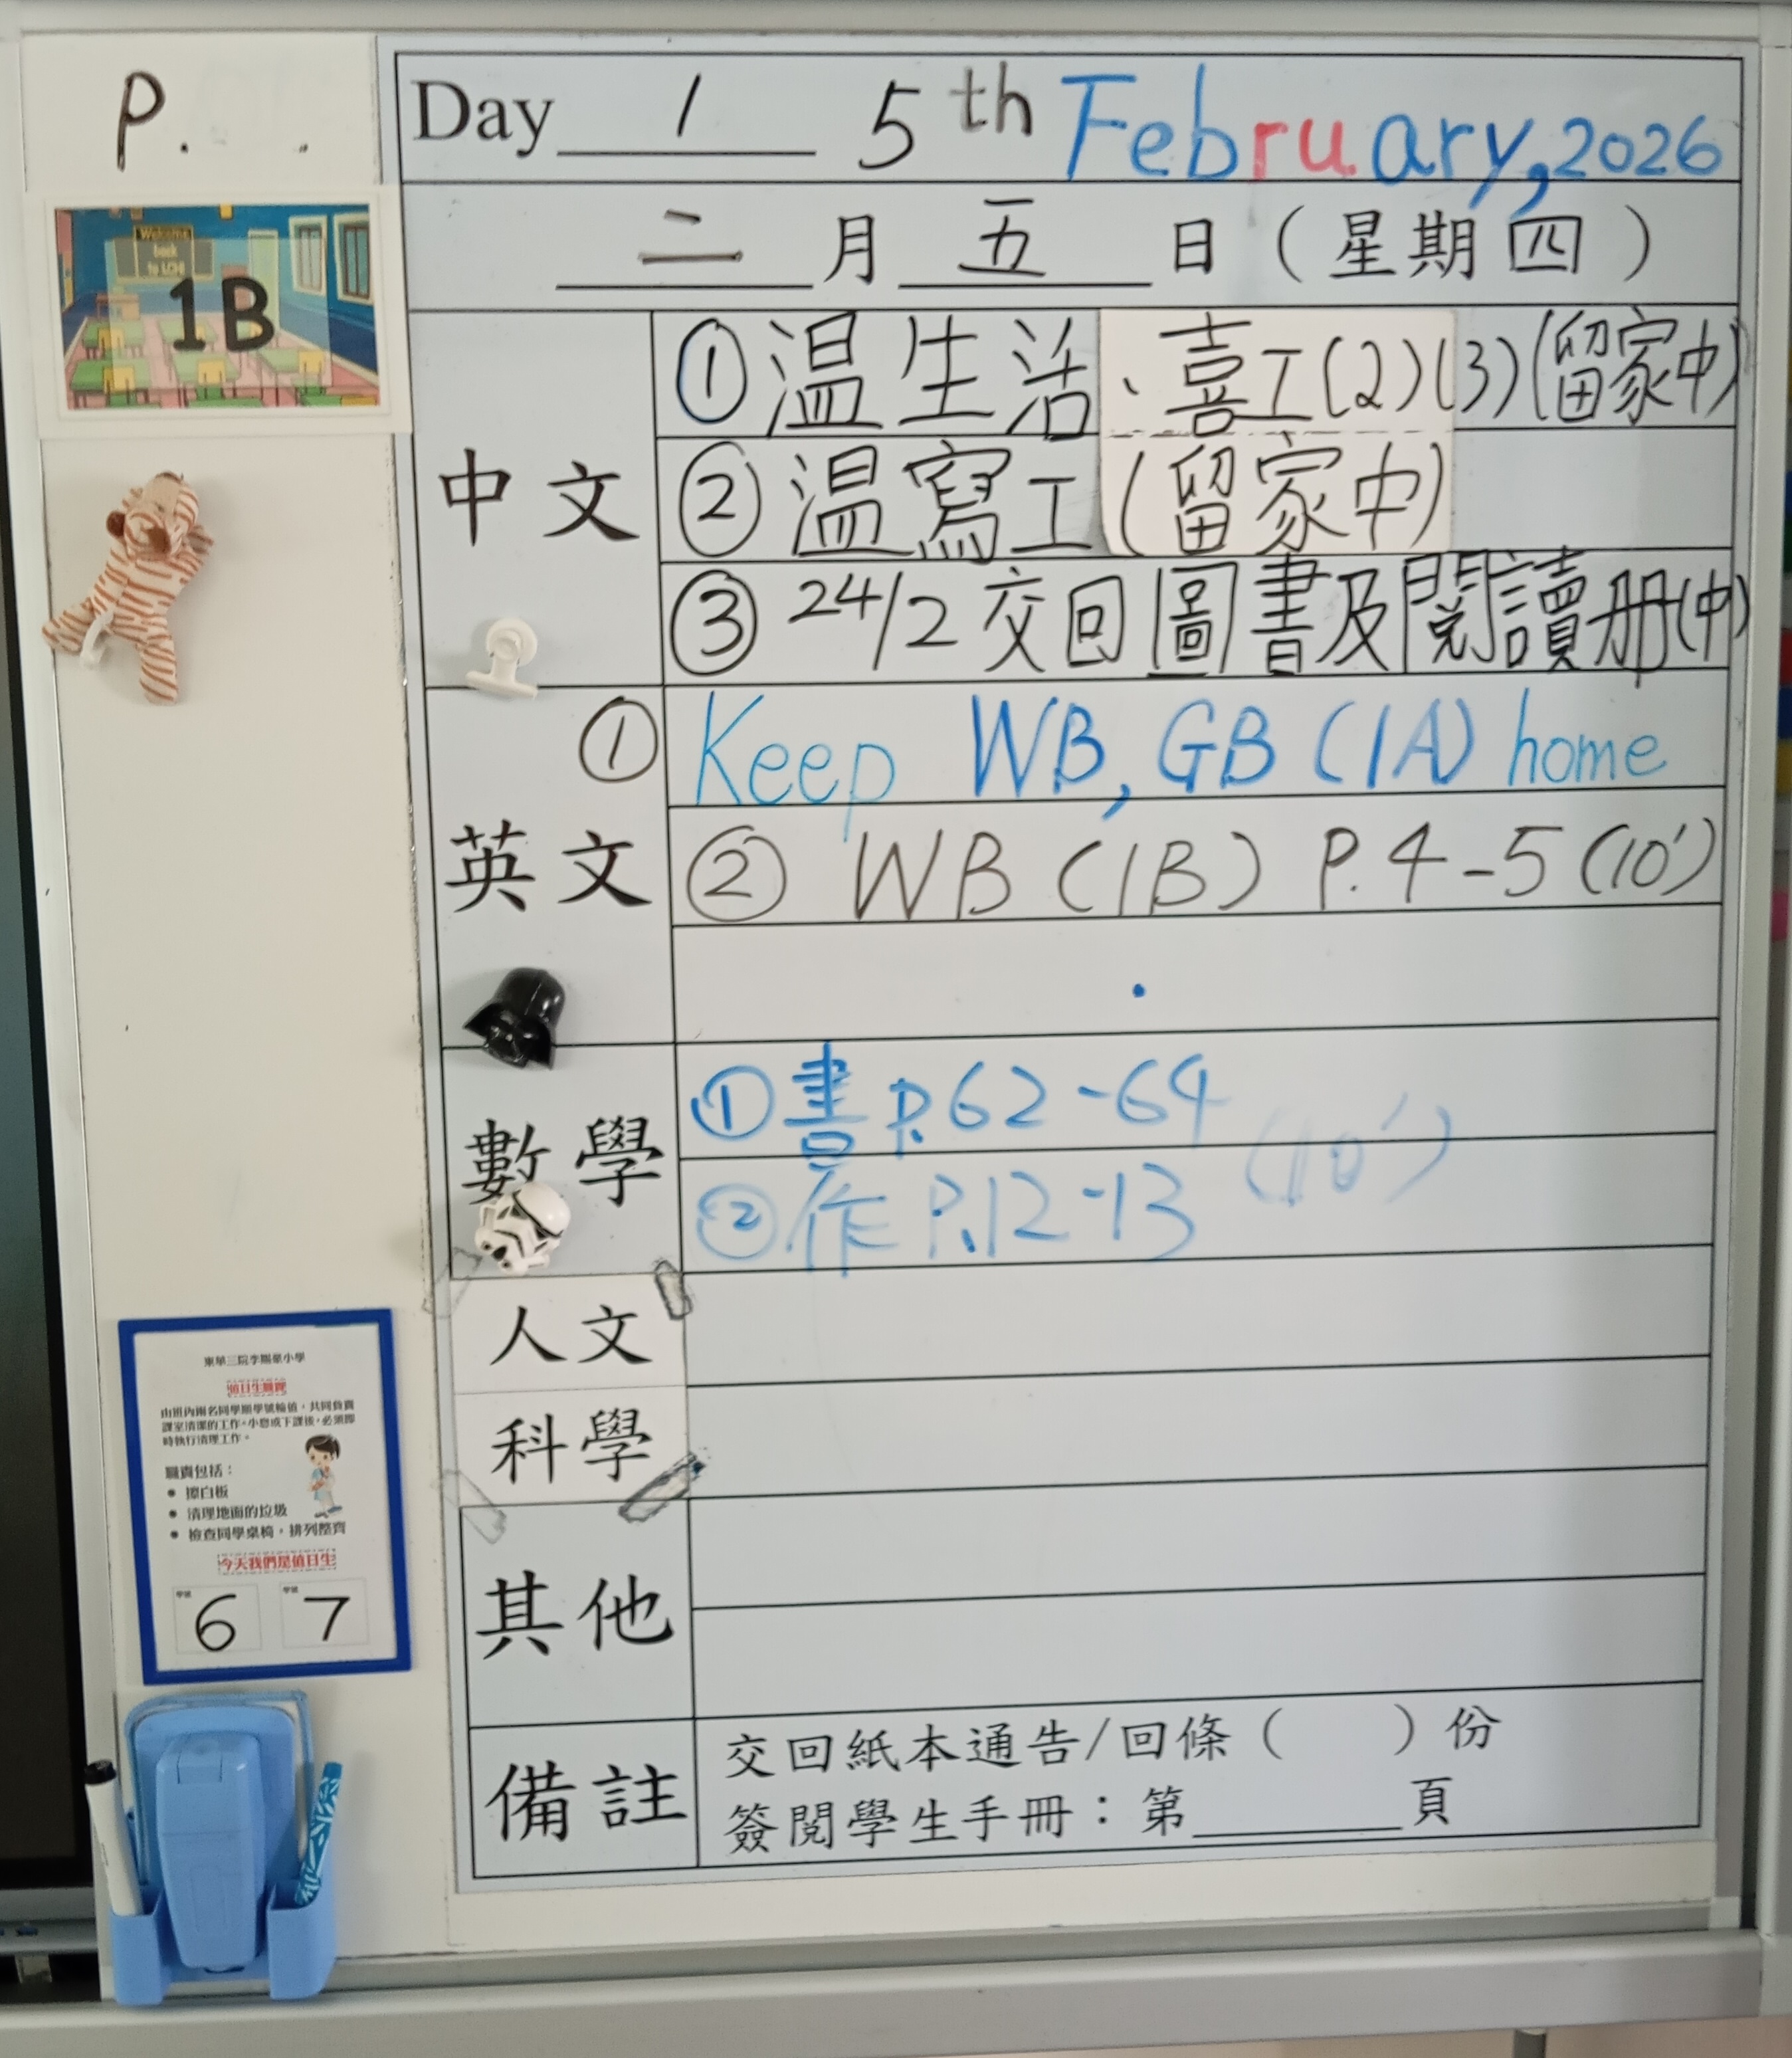 P. .
Day 1 5th February, 2026
二 月 五 日 ( 星 期 四 )
Welcome
back
1B
中文
① 温生活、喜工(2)(3)(留家中)
② 温寫工(留家中)
③ 24/2 交回圖書及閱讀册(中)
英文
① Keep WB, GB (1A) home
② WB (1B) P.4-5 (10')
數學
① 書 P.62-64
② 作 P.12-13 (10')
人文
科學
其他
備註
交回紙本通告/回條( )份
簽閱學生手冊:第______頁
值日生職責
由班內兩名同學順學號輪值,共同負責
課室清潔的工作。小息或下課後,必須即
時執行清理工作。
職責包括:
● 擦白板
● 清理地面的垃圾
● 檢查同學桌椅,排列整齊
今天我們是值日生
學號 學號
6 7